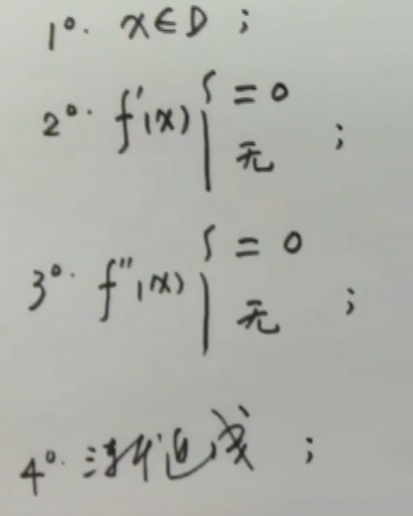 1°. x∈D ;
2°. f'(x) { = 0
无 ;
3°. f''(x) { = 0
无 ;
4°. 渐近线 ;